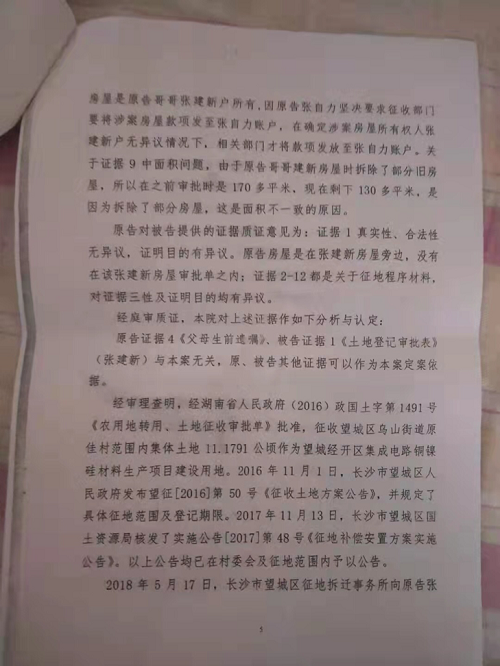 房屋是原告哥哥张建新户所有,因原告张自力坚决要求征收部门
要将涉案房屋款项发至张自力账户，在确定涉案房屋所有权人张
建新户无异议情况下，相关部门才将款项发放至张自力账户。关
于证据 9 中面积问题，由于原告哥哥建新房屋时拆除了部分旧房
屋，所以在之前审批时是 170 多平米，现在剩下 130 多平米，是
因为拆除了部分房屋，这是面积不一致的原因。
原告对被告提供的证据质证意见为：证据 1 真实性、合法性
无异议，证明目的有异议。原告房屋是在张建新房屋旁边，没有
在该张建新房屋审批单之内；证据 2-12 都是关于征地程序材料，
对证据三性及证明目的均有异议。
经庭审质证，本院对上述证据作如下分析与认定：
原告证据 4《父母生前遗嘱》、被告证据 1《土地登记审批表》
（张建新）与本案无关，原、被告其他证据可以作为本案定案依
据。
经审理查明，经湖南省人民政府（2016）政国土字第 1491 号
《农用地转用、土地征收审批单》批准，征收望城区乌山街道原
佳村范围内集体土地 11.1791 公顷作为望城经开区集成电路铜镍
硅材料生产项目建设用地。2016 年 11 月 1 日，长沙市望城区人
民政府发布望征[2016]第 50 号《征收土地方案公告》，并规定了
具体征地范围及登记期限。2017 年 11 月 13 日，长沙市望城区国
土资源局核发了实施公告[2017]第 48 号《征地补偿安置方案实施
公告》。以上公告均已在村委会及征地范围内予以公告。
2018 年 5 月 17 日，长沙市望城区征地拆迁事务所向原告张